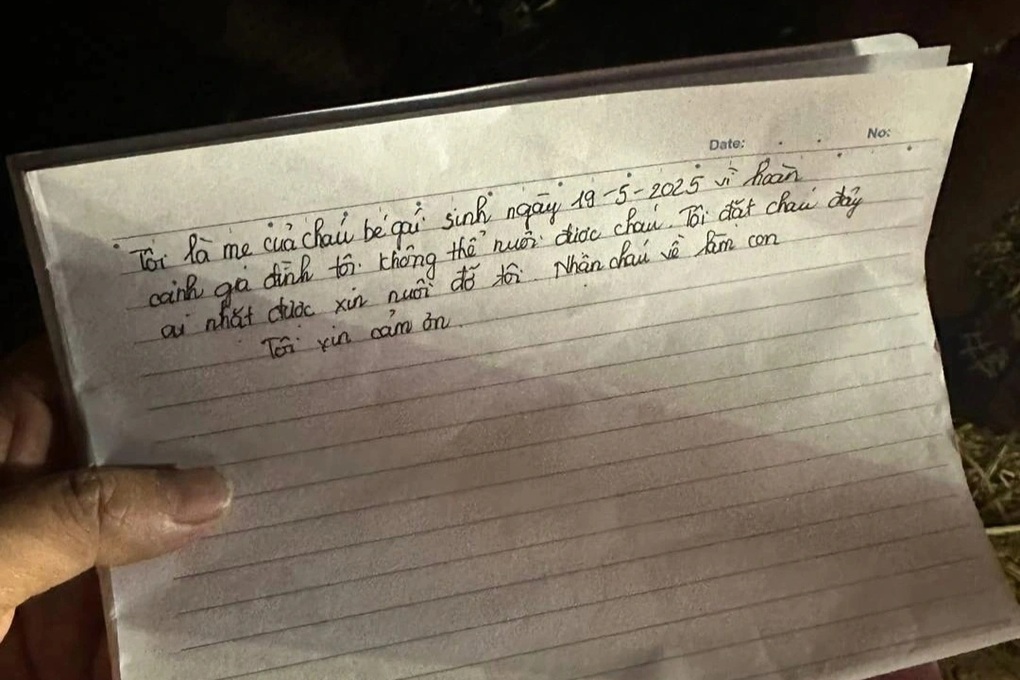 Date: No:
Tôi là mẹ của cháu bé gái sinh ngày 19-5-2025 vì hoàn
cảnh gia đình tôi không thể nuôi được cháu. Tôi đặt cháu đây
ai nhặt được xin nuôi đỡ tôi Nhận cháu về làm con
Tôi xin cảm ơn